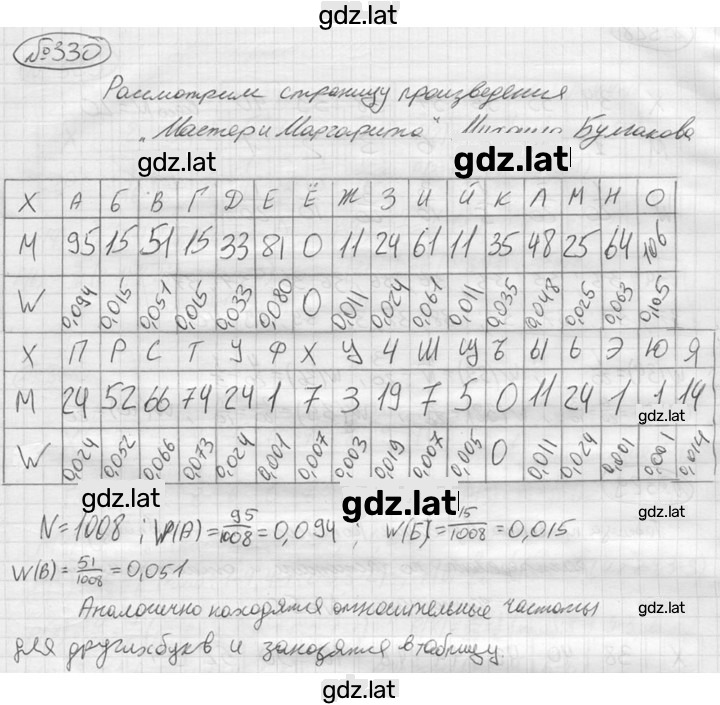 gdz.lat
№330
Рассмотрим страницу произведения
"Мастер и Маргарита" Булгакова
gdz.lat gdz.lat
X А Б В Г Д Е Ё Ж З И Й К Л М Н О
M 95 15 51 15 33 81 0 11 24 61 11 35 48 25 64 106
W 0,094 0,015 0,051 0,015 0,033 0,080 0 0,011 0,024 0,061 0,011 0,035 0,048 0,025 0,063 0,105
X П Р С Т У Ф Х Ц Ч Ш Щ Ъ Ы Ь Э Ю Я
M 24 52 66 74 24 1 7 3 19 7 5 0 11 24 1 1 14
gdz.lat
W 0,024 0,052 0,066 0,073 0,024 0,001 0,007 0,003 0,019 0,007 0,005 0 0,011 0,024 0,001 0,001 0,014
gdz.lat gdz.lat gdz.lat
N=1008 ; W(А)=95/1008=0,094 ; W(Б)=15/1008=0,015
W(В)=51/1008=0,051
Аналогично находятся относительные частоты
gdz.lat
для других букв и заносятся в таблицу.
gdz.lat